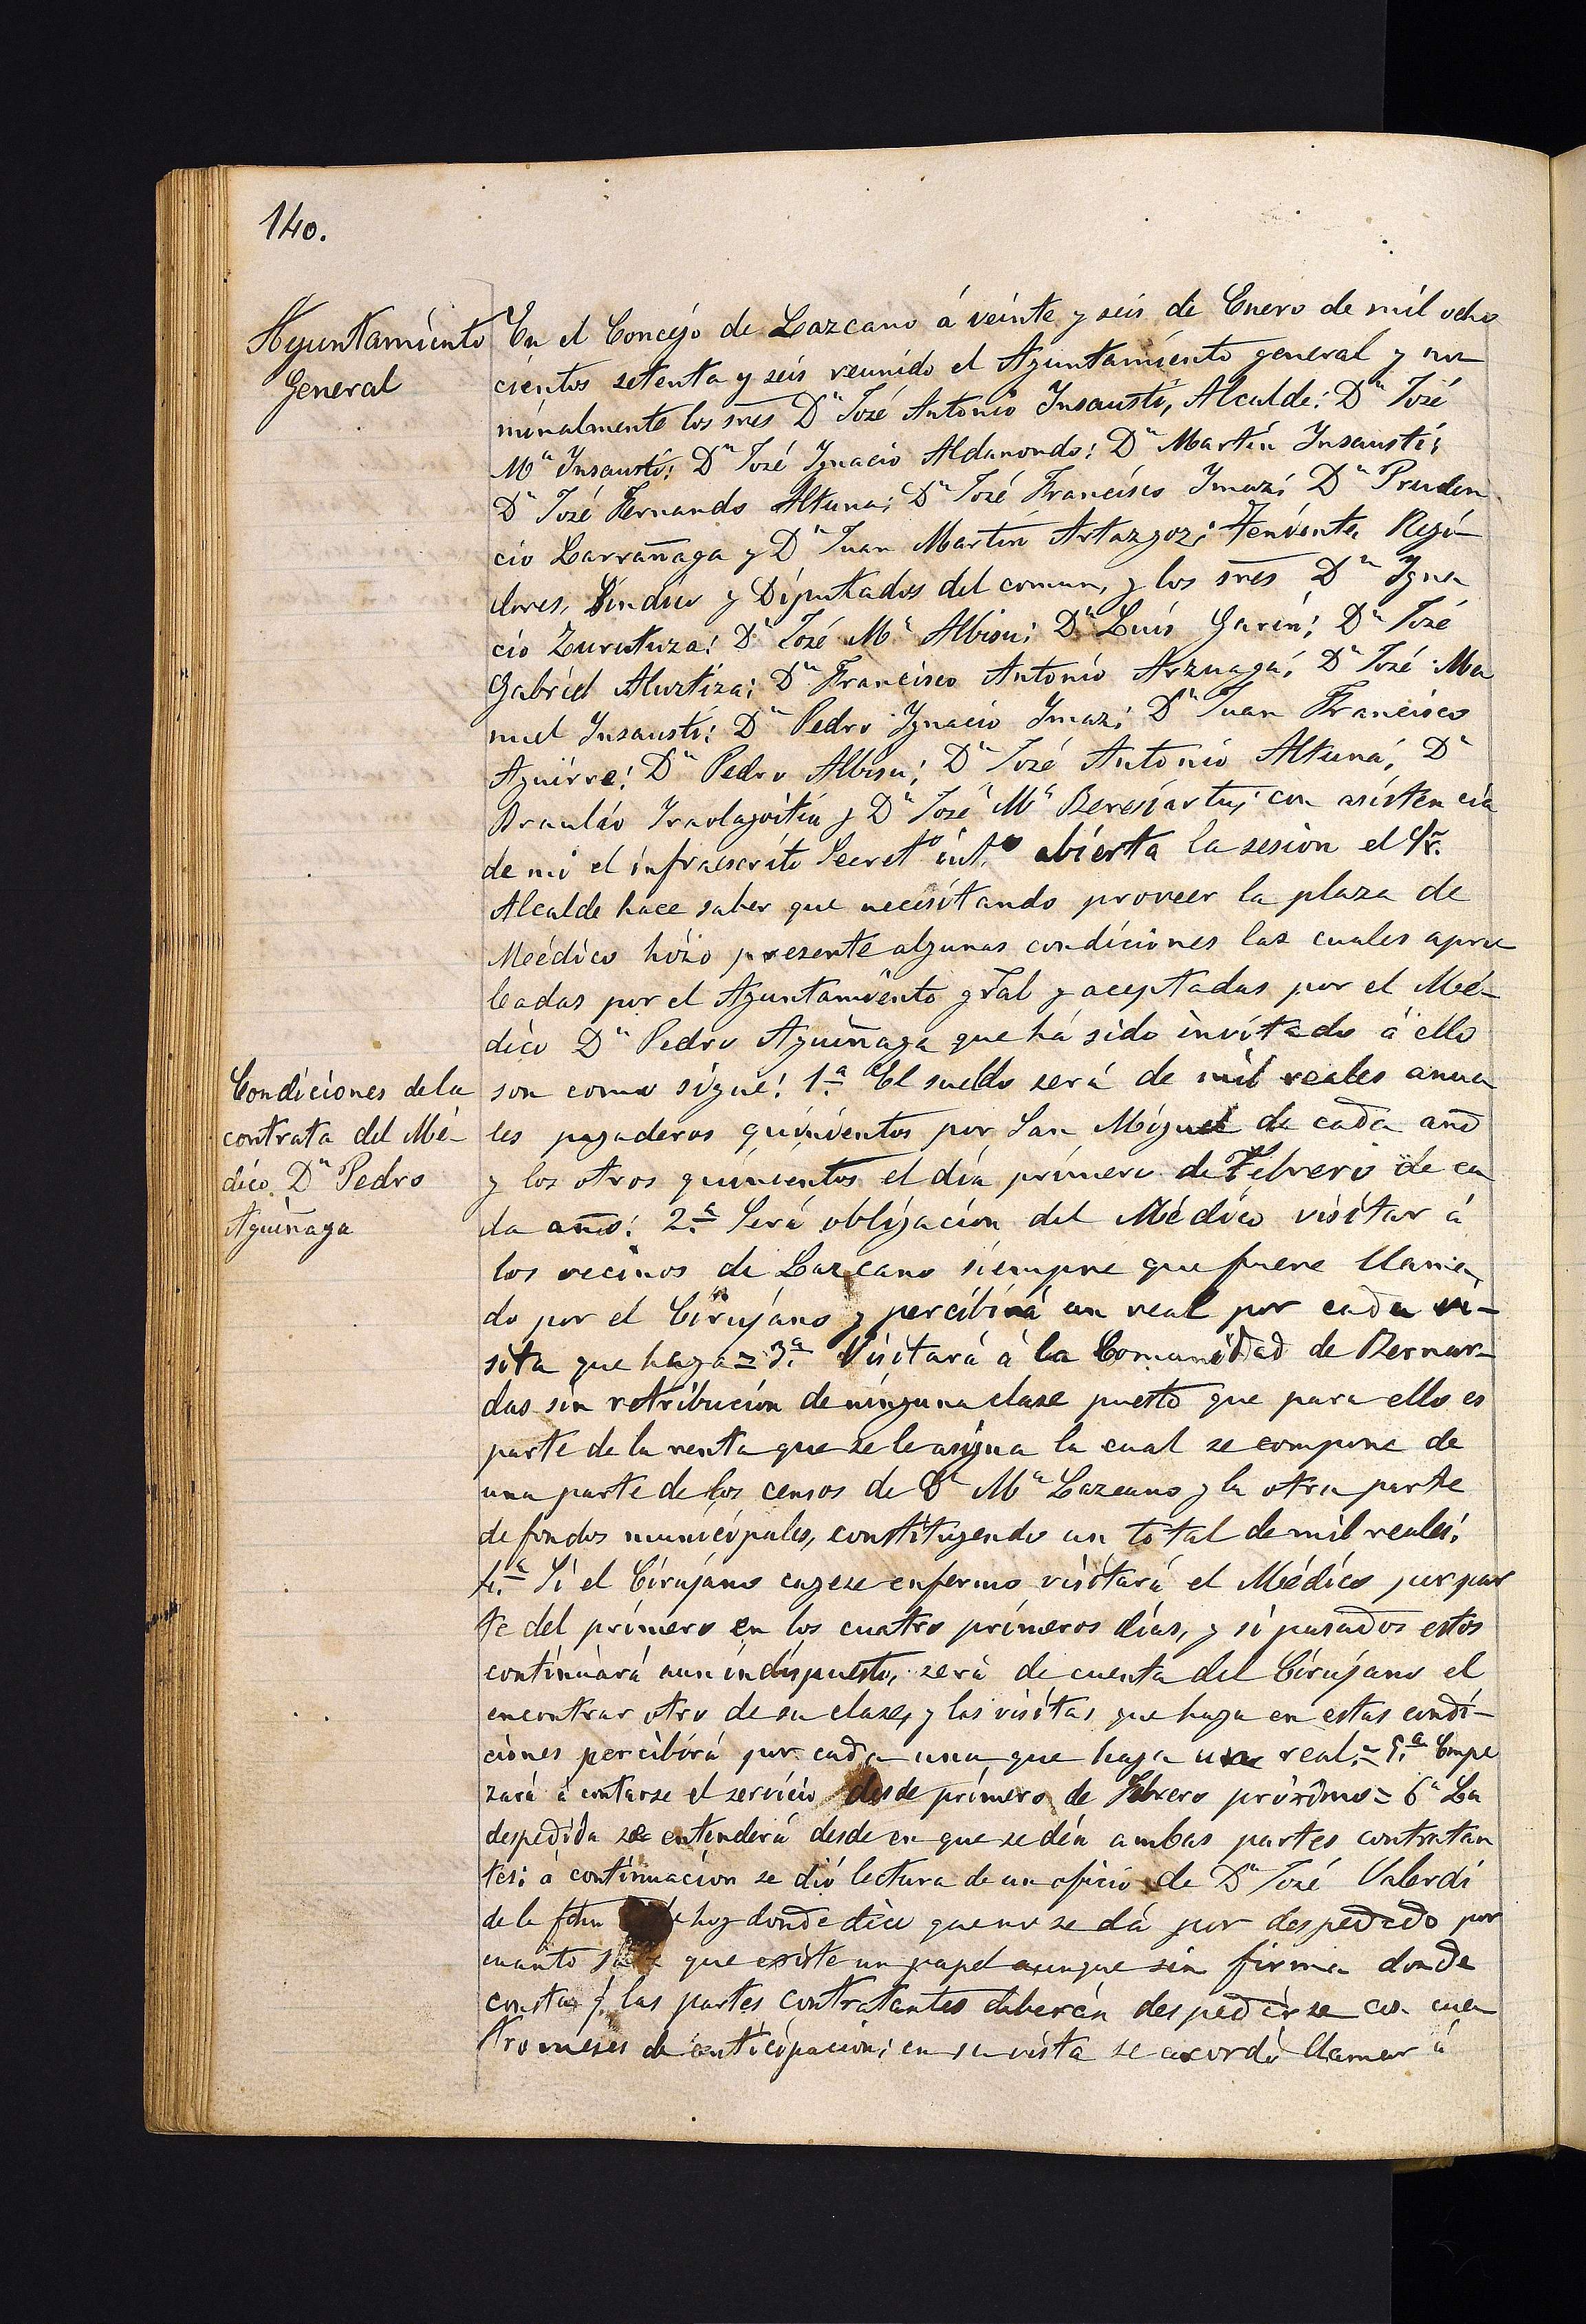 140.
Ayuntamiento
General
En el Concejo de Lazcano á veinte y seis de Enero de mil ocho
cientos setenta y seis reunido el Ayuntamiento general y no
minalmente los sres Dn José Antonio Insausti, Alcalde: Dn José
Ma Insausti: Dn José Ygnacio Aldanondo: Dn Martín Insausti:
Dn José Fernando Altuna: Dn José Francisco Imaz: Dn Pruden
cio Larrañaga y Dn Juan Martín Artazgoz: Teniente, Regi-
dores, Síndico y Diputados del comun, y los sres Dn Ygna
cio Zurutuza: Dn José Ma Albisu: Dn Luis Garín: Dn José
Gabriel Aluztiza: Dn Francisco Antonio Arzuaga: Dn José Ma
nuel Insausti: Dn Pedro Ygnacio Imaz: Dn Juan Francisco
Aguirre: Dn Pedro Albisu: Dn José Antonio Altuna: Dn
Braulio Iraolagoitia y Dn José Ma Beresiartu; con asisten cia
de mi el infraescrito Secreto into abierta la sesion el Sr.
Alcalde hace saber que necesitando proveer la plaza de
Médico hizo presente algunas condiciones las cuales apro
badas por el Ayuntamiento gral y aceptadas por el Mé-
dico Dn Pedro Aguiñaga que há sido invitado á ello
Condiciones de la
contrata del Mé-
dico Dn Pedro
Aguiñaga
son como sigue: 1.a El sueldo será de mil reales anua
les pagaderos quinientos por San Miguel de cada año
y los otros quinientos el día primero de Febrero de ca
da año: 2.a Será obligacion del Médico visitar á
los vecinos de Lazcano siempre que fuere llama
do por el Cirujano y percibirá un real por cada vi-
sita que haga = 3.a Visitará á la Comunidad de Bernar-
das sin retribución de ninguna clase puesto que para ello es
parte de la renta que se le asigna la cual se compone de
una parte de los censos de Da Ma Lazcano y la otra parte
de fondos municipales, constituyendo un total de mil reales:
4.a Si el Cirujano cayese enfermo visitará el Médico por par
te del primero en los cuatro primeros días, y si pasados estos
continuará aun indispuesto, será de cuenta del Cirujano el
encontrar otro de su clase, y las visitas que haga en estas condi-
ciones percibirá por cada una que haga un real.= 5.a Empe
zará á contarse el servicio desde primero de Febrero próximo = 6a La
despedida se entenderá desde en que se dén ambas partes contratan
tes: á continuacion se dió lectura de un oficio de Dn José Valerdi
de la fcha hoy donde dice que no se dá por despedido por
cuanto que existe un papel aunque sin firma donde
consta q. las partes contratantes deberán despedirse con cua
tro meses de anticipacion; en su vista se acordó llamar á